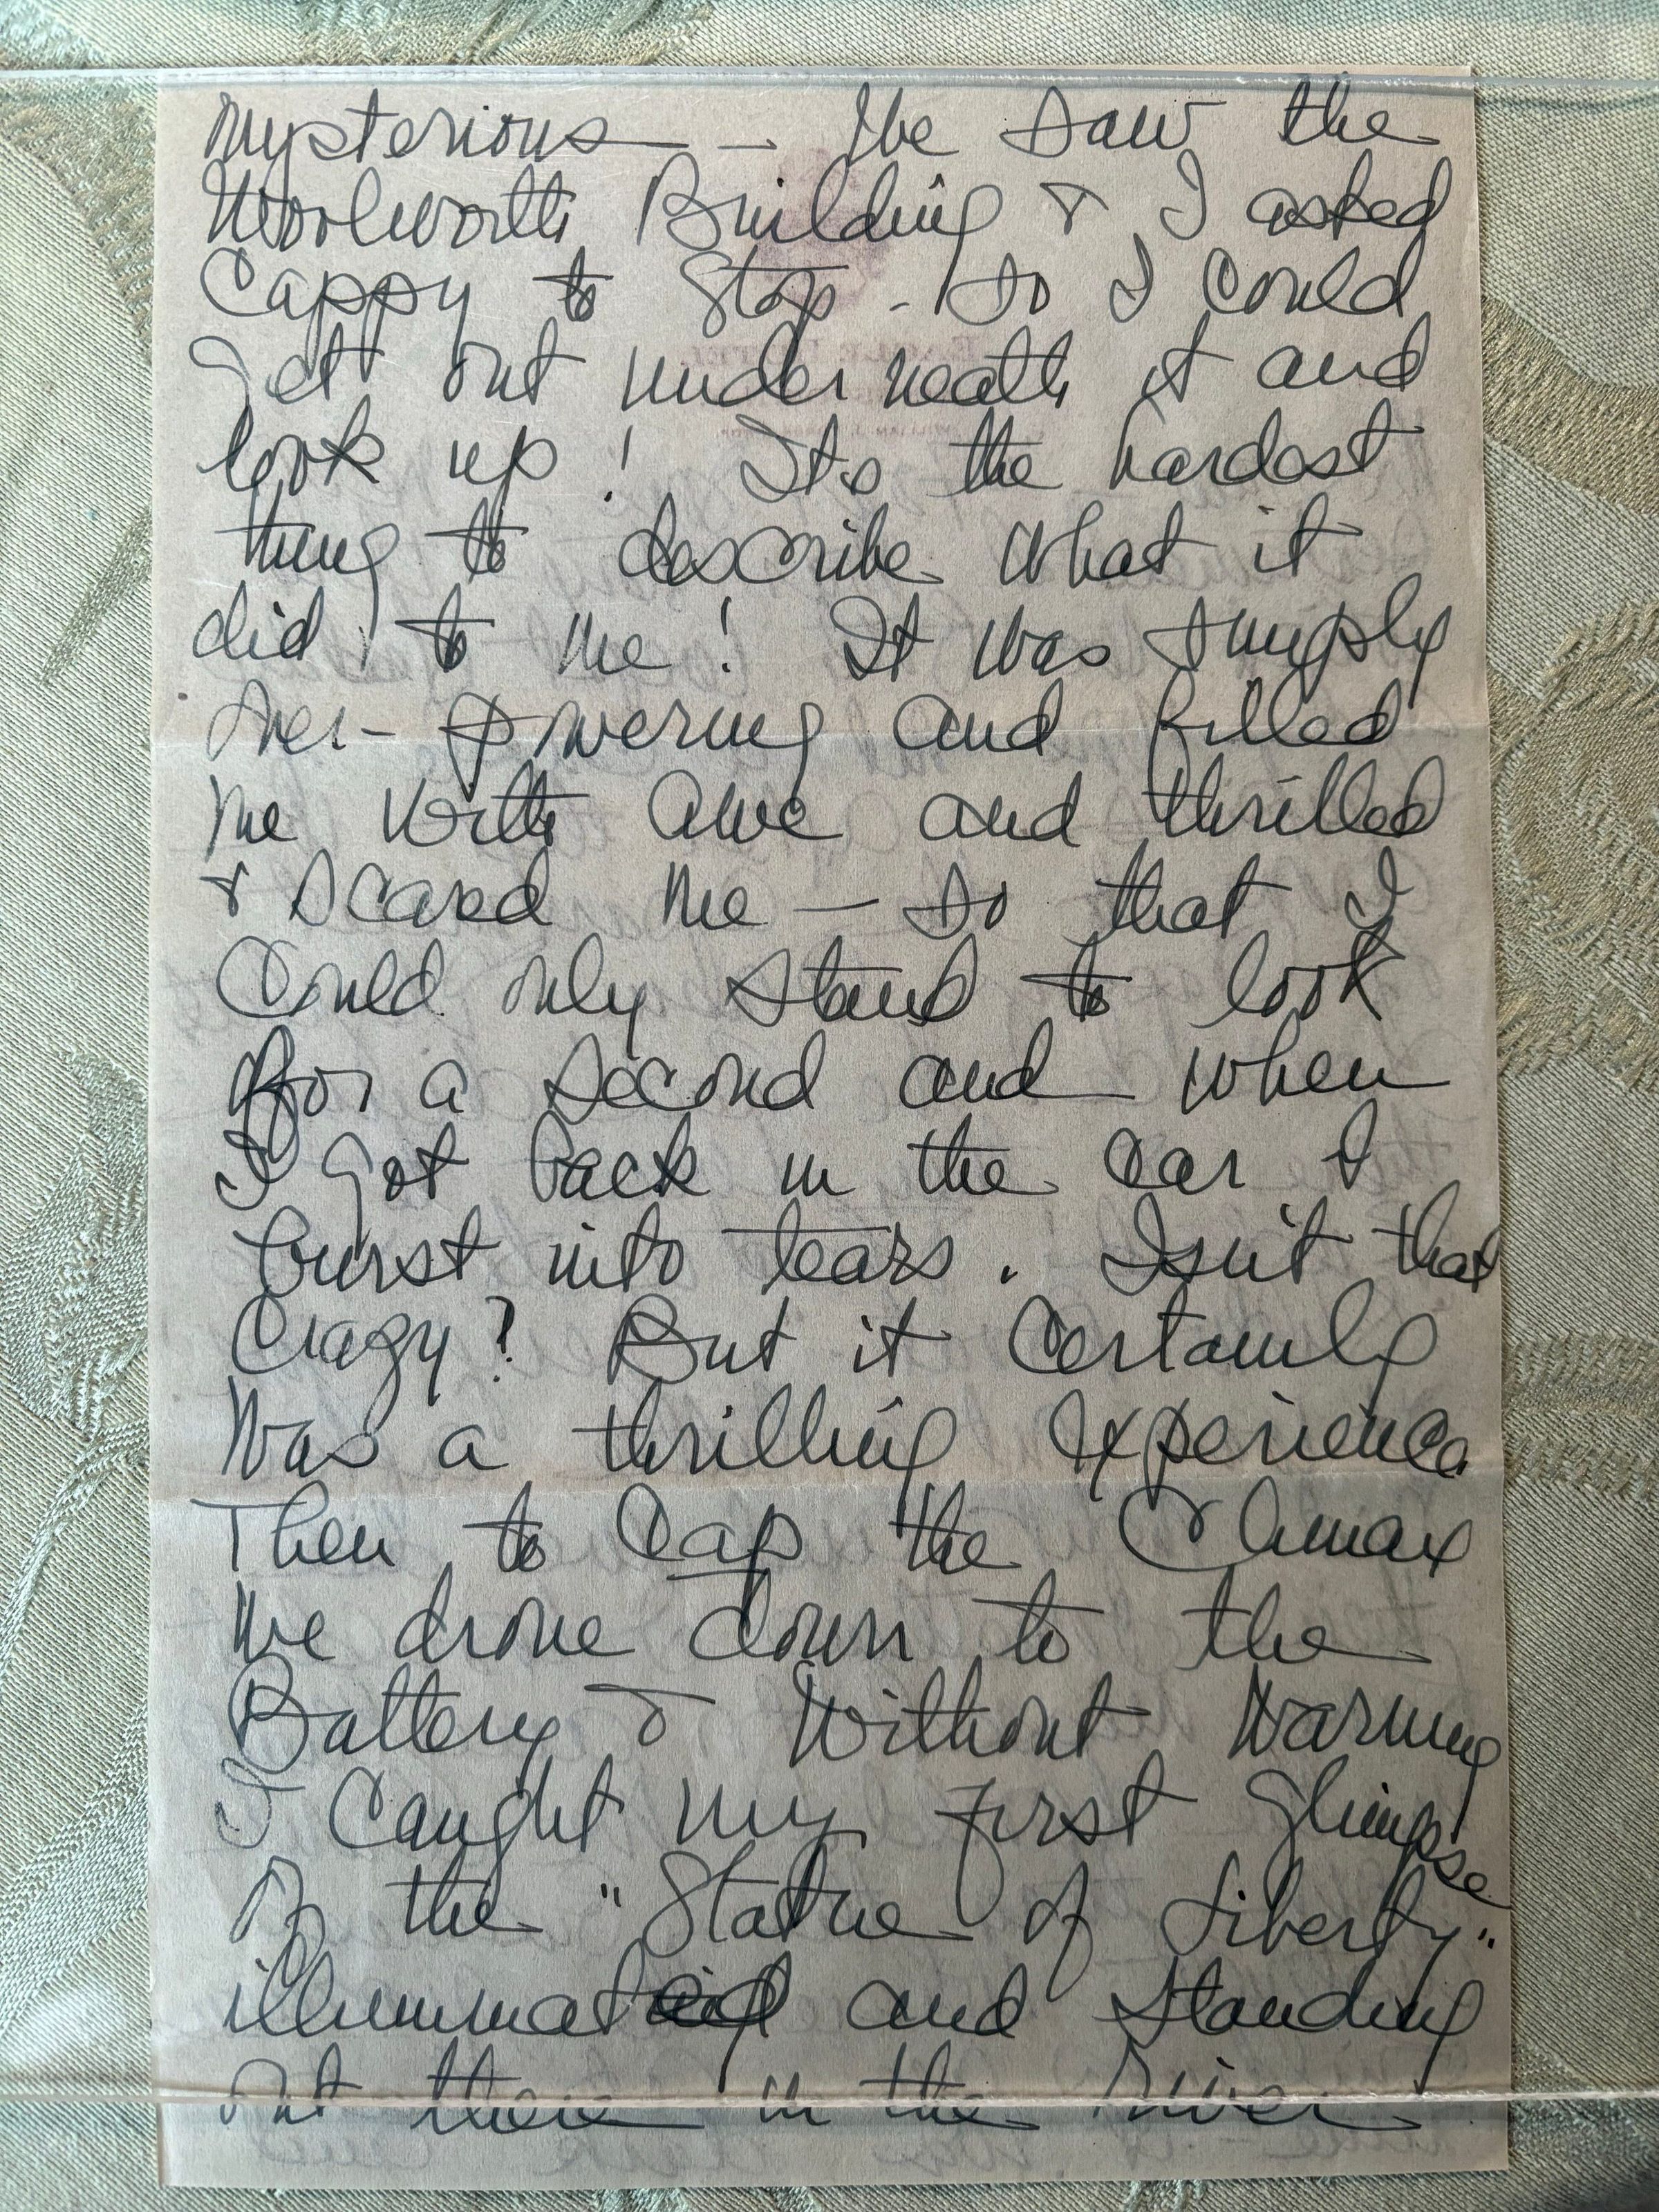 mysterious — We saw the
Woolworth Building & I asked
Cappy to stop - so I could
get out under neath it and
look up! Its the hardest
thing to describe what it
did to me! It was simply
over-powering and filled
me with awe and thrilled
& scared me — so that I
could only stand to look
for a second and when
I got back in the car I
burst into tears. Isn't that
crazy? But it certainly
was a thrilling experience
Then to cap the climax
we drove down to the
Battery & without warning
I caught my first glimpse
of the "Statue of Liberty"
illuminated and standing
out there in the river